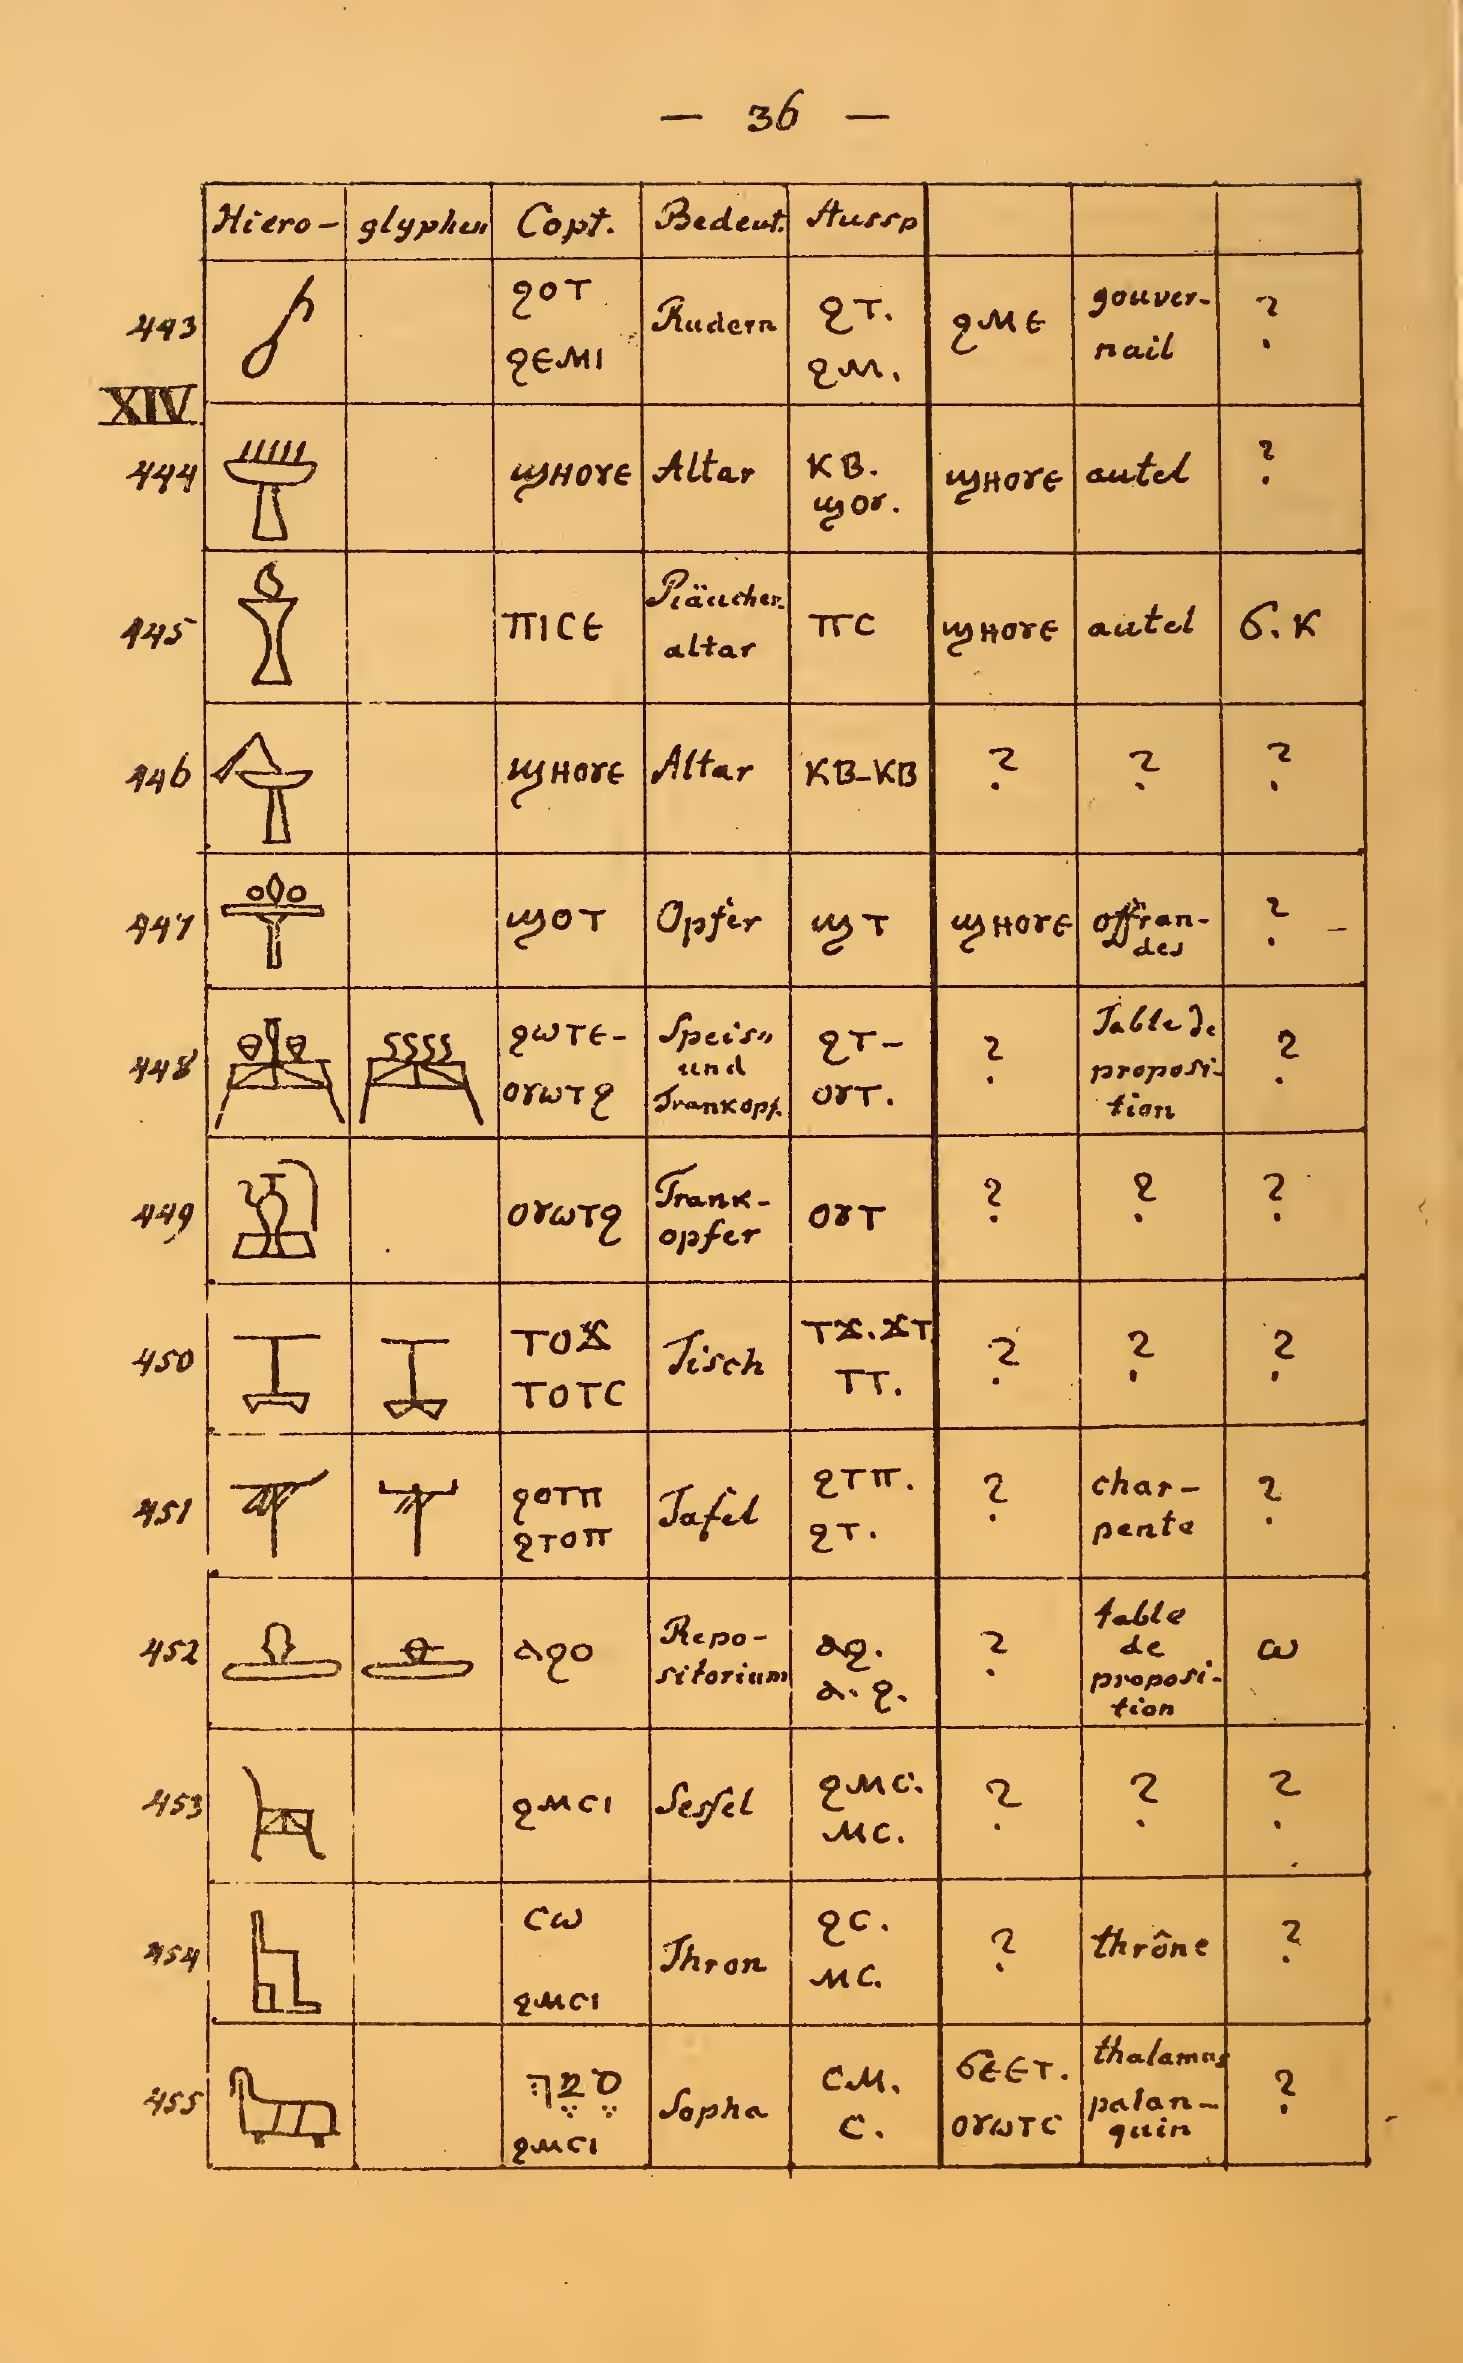 — 36 —
Hiero- glyphen Copt. Bedeut. Aussp
443 ϩⲟⲧ ϩⲉⲙⲓ Rudern ϩⲧ. ϩⲙ. ϩⲙⲉ gouver- nail ?
XIV.
444 ϣⲏⲟⲩⲉ Altar ⲕⲃ. ϣⲟⲩ. ϣⲏⲟⲩⲉ autel ?
445 ⲡⲓⲥⲉ Räucher- altar ⲡⲥ ϣⲏⲟⲩⲉ autel ϭ.ⲕ
446 ϣⲏⲟⲩⲉ Altar ⲕⲃ-ⲕⲃ ? ? ?
447 ϣⲟⲧ Opfer ϣⲧ ϣⲏⲟⲩⲉ offran- des ?
448 ϩⲱⲧⲉ- ⲟⲩⲱⲧϩ Speis= und Trankopf. ϩⲧ- ⲟⲩⲧ. ? Table de proposi- tion ?
449 ⲟⲩⲱⲧϩ Trank- opfer ⲟⲩⲧ ? ? ?
450 ⲧⲟϫ ⲧⲟⲧⲥ Tisch ⲧϫ.ϫⲧ ⲧⲧ. ? ? ?
451 ϩⲟⲧⲡ ϩⲧⲟⲡ Tafel ϩⲧⲡ. ϩⲧ. ? char- pente ?
452 ⲁϩⲟ Repo- sitorium ⲁϩ. ⲁ.ϩ. ? table de proposi- tion ⲱ
453 ϩⲙⲥⲓ Sessel ϩⲙⲥ. ⲙⲥ. ? ? ?
454 ⲥⲱ ϩⲙⲥⲓ Thron ϩⲥ. ⲙⲥ. ? thrône ?
455 ϩⲙⲥⲓ Sopha ⲥⲙ. ⲥ. ϭⲉⲉⲧ. ⲟⲩⲱⲧⲥ thalamus palan- quin ?